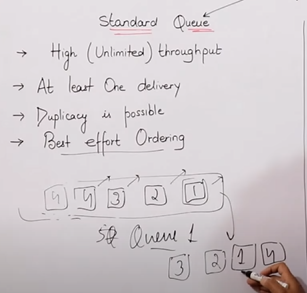 Standard Queue
→ High (Unlimited) throughput
→ At least One delivery
→ Duplicacy is possible
→ Best effort Ordering
4 4 3 2 1
SQ Queue 1
3 2 1 4